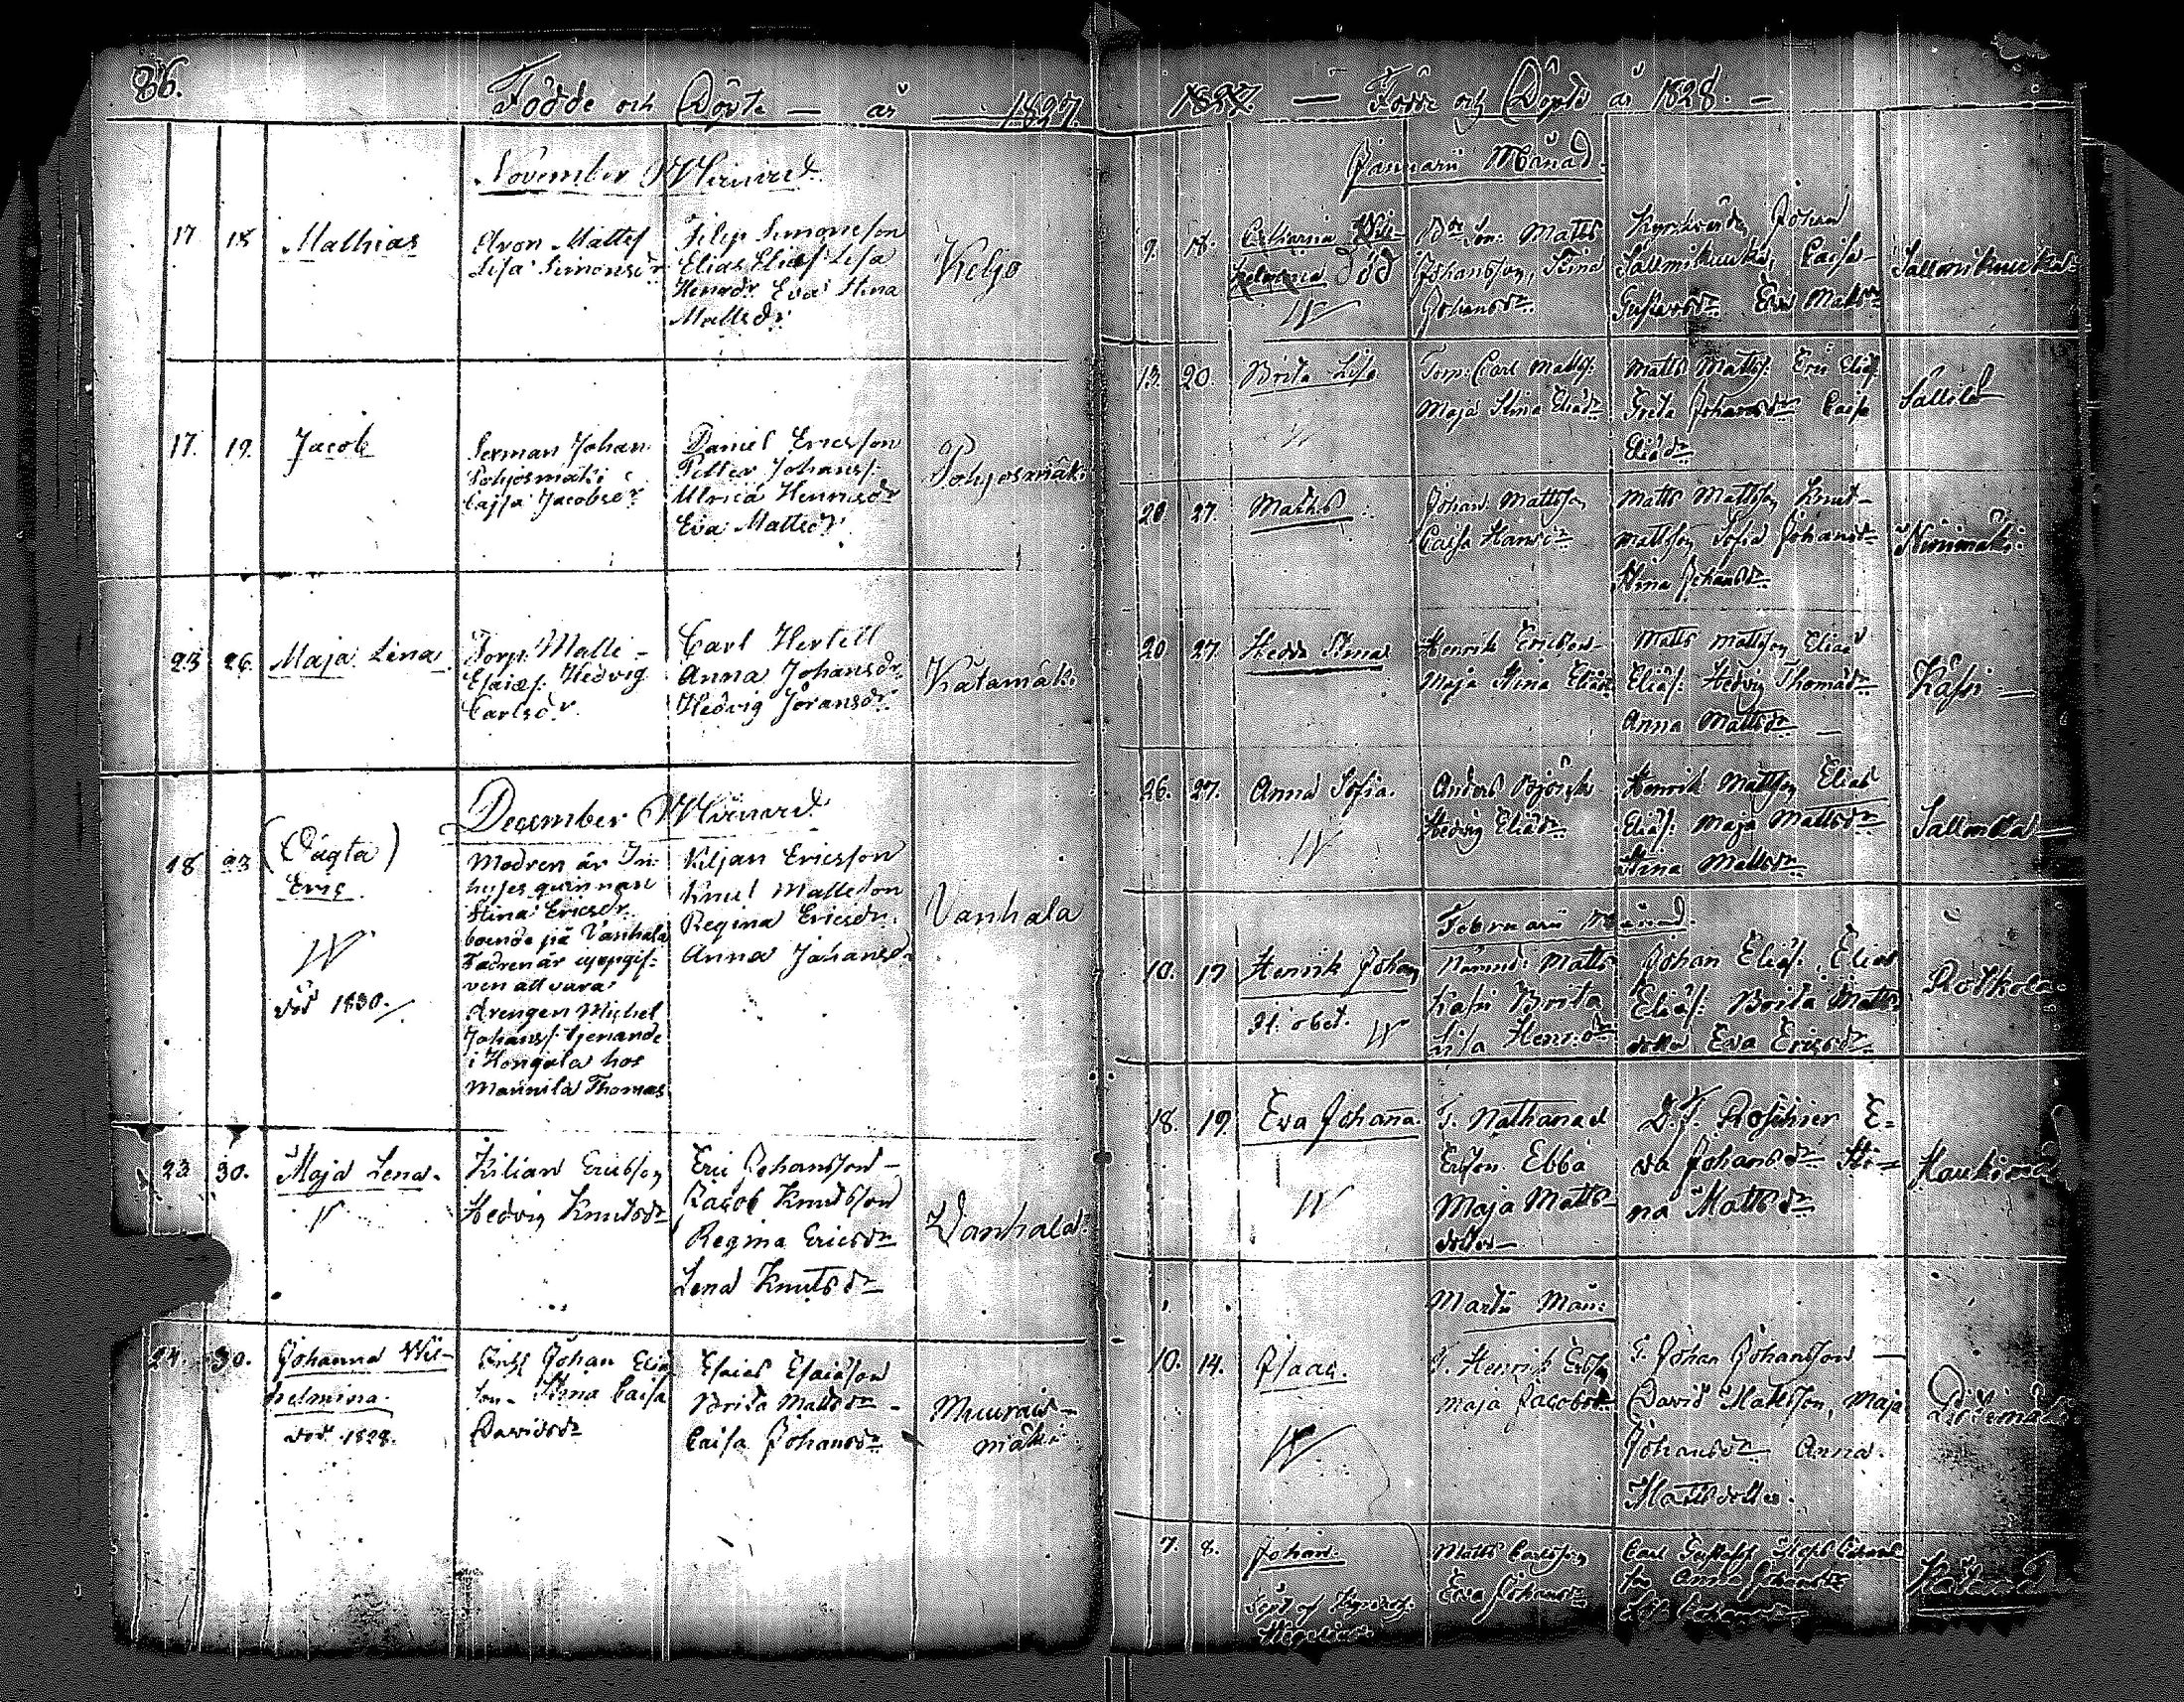 86.
Födde och Döpte — år — 1827.
November Månad.
17. 18. Mathias
Aron Mattss
Lisa Simonsdr
Filip Simonsson
Elias Eliass Lisa
Henrsdr Eva Stina
Mattsdr
Keljo
17. 19. Jacob
Johan
Pohjosmäki
Cajsa Jacobsdr
Daniel Ericsson
Petter Johanss.
Ulrica Henricsdr
Eva Mattsdr
Pohjosmäki
23 26. Maja Lena
Torp. Matts
Esaiæs. Hedvig
Carlsdr.
Carl Hertell
Anna Johansdr
Hedvig Jöransdr
Katamäki
December Månad.
18 23 (Oägta)
Eric.
död 1830.
Modren är In-
hyses qvinnan
Stina Ericsdr
boende på Vanhala
Fadren är uppgif-
ven att vara
drengen Michel
Johanss. tjenande
i Kongola hos
Mannila Thomas
Kiljan Ericsson
Knut Mattsson
Regina Ericsdr.
Anna Johansdr
Vanhala
23 30. Maja Lena.
Kilian Ericsson
Hedvig Knutsdr
Eric Johansson —
Jacob Knutsson
Regina Ericsdr
Lena Knutsdr
Vanhala
24. 30. Johanna Wil-
helmina.
död 1828.
Johan Elias
son. Stina Caisa
Davidsdr
Esaias Esaiasson
Brita Mattsdr —
Caisa Johansdr
Muurais-
mäki
1827. — Födde och Döpte år 1828. —
Januarii Månad.
9. 18. Catharina Wil-
helmina död
Bde Son: Matts
Johansson, Stina
Johansdr.
Kyrkvärden Johan
Sallmikuukka, Caisa
Gustavsdr Eva Mattsdr
Sallmikuukka
13. 20. Brita Lisa
Torp: Carl Mattss:
Maja Stina Eliædr
Matts Mattss: Eric Eliæs
Greta Johansdr Caisa
Eliædr
Sallila
20. 27. Matts
Johan Mattsson
Caisa Hansdr
Matts Mattsson Knut
Mattsson Sofia Johansdr
Stina Johansdr
Niinimäki.
20 27. Hedda Stina
Henrik Ericsson
Maja Stina Eliædr
Matts Mattsson Elias
Eliæs. Hedvig Thomædr
Anna Mattsdr —
Kåssi —
26. 27. Anna Sofia.
Anders Björk
Hedvig Eliædr
Henrik Mattsson Elias
Eliæs. Maja Mattsdr
Stina Mattsdr
Sallmela
Februarii Månad.
10. 17 Henrik Johan
Nämnd: Matts
Kassi Brita
Lisa Henrsdr
Johan Eliæs. Elias
Eliæs. Brita Matts
dotter Eva Ericsdr
Rotkola.
18. 19. Eva Johanna.
T. Nathanael
Ersson Ebba
Maja Matts-
dotter
D. F. Roschier E-
va Johansdr Sti-
na Mattsdr
Haukimä
Martii Mån:
10. 14. Isaac.
T. Henrik Erss
Maja Jacobsdr
T. Johan Johansson —
David Mattsson, Maja
Johansdr Anna
Mattsdotter.
7. 8. Johan.
Matts Carlsson
Eva Johansdr
Carl Gustafss
Anna Johansdr